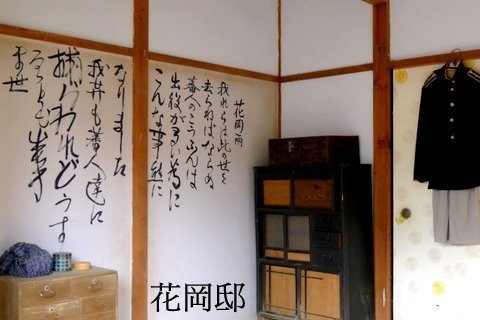 花岡両
我れらは此の世を
去らねばならぬ
蕃人のこうふんは
出役が多い為に
こんな事件に
なりました
我等も蕃人達に
捕はれどうす
ることも出来
ま世
花岡邸